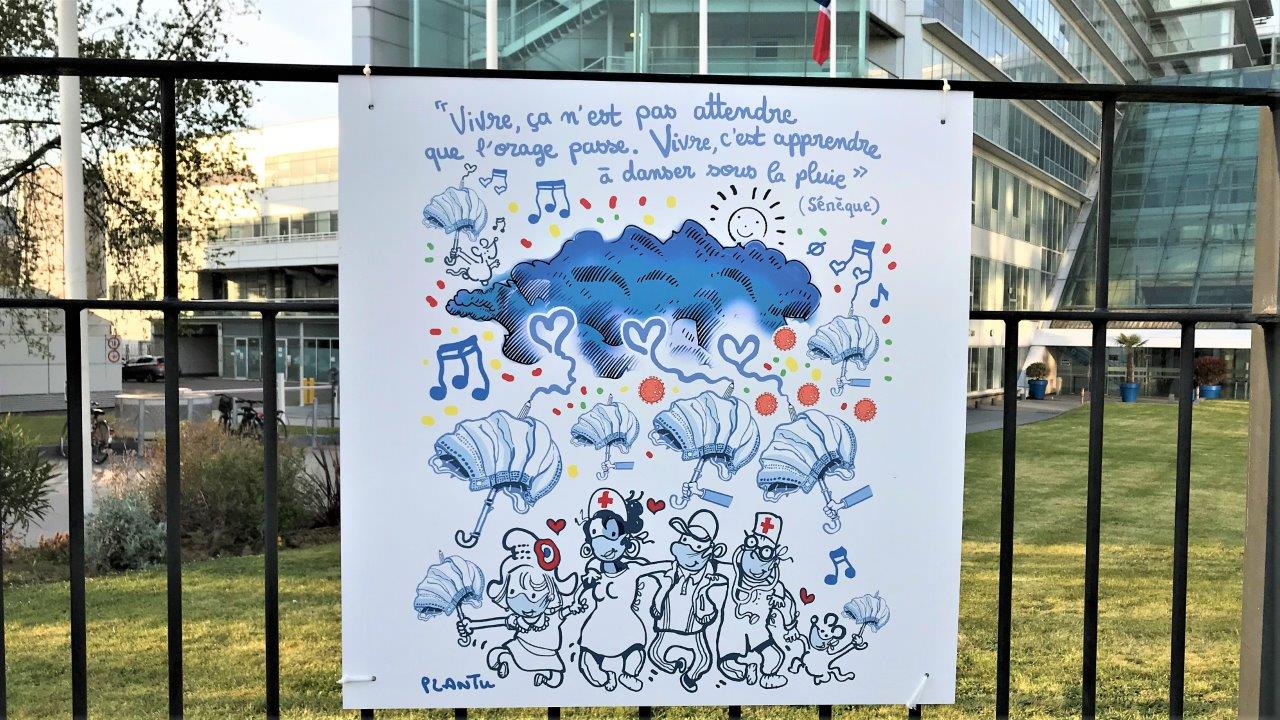 "Vivre, ça n'est pas attendre
que l'orage passe. Vivre, c'est apprendre
à danser sous la pluie »
(Sénèque)
PLANTU